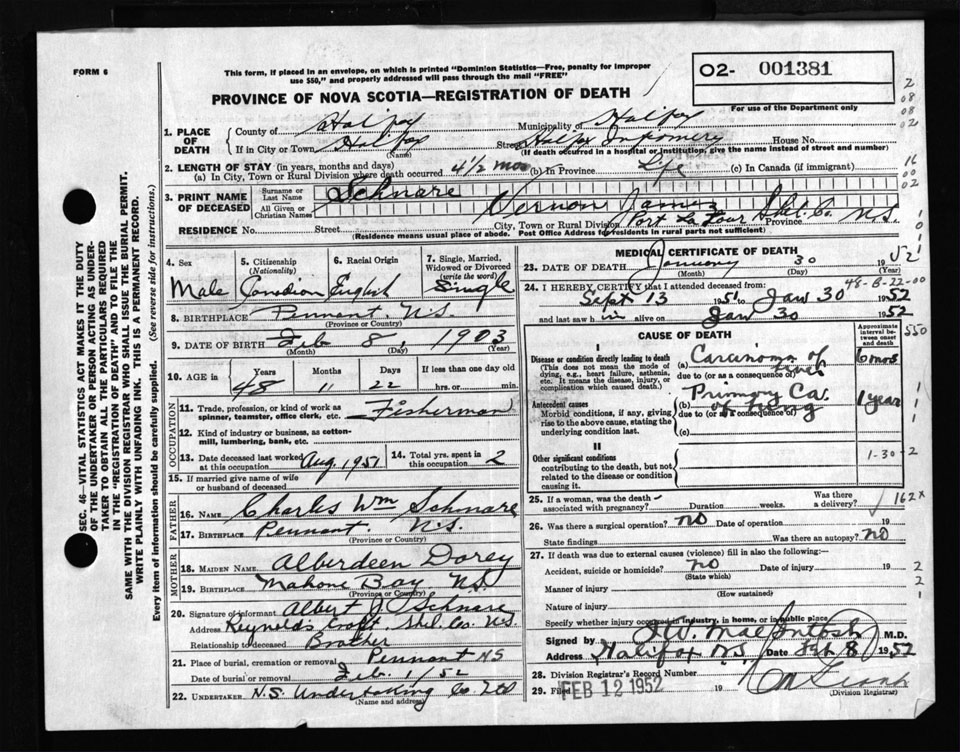 FORM 6
This form, if placed in an envelope, on which is printed "Dominion Statistics—Free, penalty for improper
use $50," and properly addressed will pass through the mail "FREE"
02- 001381
For use of the Department only
PROVINCE OF NOVA SCOTIA—REGISTRATION OF DEATH
2
08
08
02
1. PLACE OF DEATH
County of Halifax Municipality of Halifax
If in City or Town Halifax Street Halifax Infirmery House No.
(Name) (If death occurred in a hospital or institution, give the name instead of street and number)
2. LENGTH OF STAY (in years, months and days)
(a) In City, Town or Rural Division where death occurred 4 1/2 mos (b) In Province Life (c) In Canada (if immigrant)
16
00
02
3. PRINT NAME OF DECEASED
Surname or Last Name Schnare
All Given or Christian Names Vernon James
RESIDENCE No. Street City, Town or Rural Division Port La Tour Shel. Co. Province N.S.
(Residence means usual place of abode. Post Office Address for residents in rural parts not sufficient)
4. Sex Male
5. Citizenship (Nationality) Canadian
6. Racial Origin English
7. Single, Married, Widowed or Divorced (write the word) Single
8. BIRTHPLACE Pennant N.S.
(Province or Country)
9. DATE OF BIRTH Feb 8, 1903
(Month) (Day) (Year)
10. AGE in Years Months Days If less than one day old
48 11 22 hrs. or min.
OCCUPATION
11. Trade, profession, or kind of work as
spinner, teamster, office clerk, etc. Fisherman
12. Kind of industry or business, as cotton-
mill, lumbering, bank, etc.
13. Date deceased last worked
at this occupation Aug. 1951
14. Total yrs. spent in
this occupation 2
15. If married give name of wife
or husband of deceased
FATHER
16. Name Charles Wm Schnare
17. BIRTHPLACE Pennant. N.S.
(Province or Country)
MOTHER
18. MAIDEN NAME Alberdeen Dorey
19. BIRTHPLACE Mahone Bay N.S.
(Province or Country)
20. Signature of informant Albert J. Schnare
Address Reynolds Croft Shel. Co. N.S.
Relationship to deceased Brother
21. Place of burial, cremation or removal Pennant NS
Date of burial or removal Feb. 1/52
22. UNDERTAKER N.S. Undertaking Co. Ltd
(Name and address)
MEDICAL CERTIFICATE OF DEATH
23. DATE OF DEATH January 30 1952
(Month) (Day) (Year)
48-B-22-00
24. I HEREBY CERTIFY that I attended deceased from:
Sept 13 1951 to Jan 30 1952
and last saw him alive on Jan 30 1952
CAUSE OF DEATH
Approximate interval between onset and death
550
I
Disease or condition directly leading to death
(This does not mean the mode of
dying, e.g., heart failure, asthenia,
etc. It means the disease, injury, or
complication which caused death.)
(a) Carcinoma of liver 6 mos
due to (or as a consequence of)
Antecedent causes
Morbid conditions, if any, giving
rise to the above cause, stating the
underlying condition last.
(b) Primary Ca. of lung 1 year
due to (or as a consequence of)
(c)
II
Other significant conditions
contributing to the death, but not
related to the disease or condition
causing it.
1-30-2
25. If a woman, was the death
associated with pregnancy? Duration weeks. Was there a delivery?
162X
26. Was there a surgical operation? no Date of operation 19
State findings Was there an autopsy? no
27. If death was due to external causes (violence) fill in also the following:
Accident, suicide or homicide? no Date of injury 19
(State which)
Manner of injury
(How sustained)
Nature of injury
Specify whether injury occurred in industry, in home, or in public place
Signed by J.W. MacIntosh M.D.
Address Halifax N.S. Date Feb. 8 1952
28. Division Registrar's Record Number
29. Filed FEB 12 1952 19
(Division Registrar)
SEC. 46—VITAL STATISTICS ACT MAKES IT THE DUTY
OF THE UNDERTAKER OR PERSON ACTING AS UNDER-
TAKER TO OBTAIN ALL THE PARTICULARS REQUIRED
IN THE "REGISTRATION OF DEATH" AND TO FILE THE
SAME WITH THE DIVISION REGISTRAR WHO SHALL ISSUE THE BURIAL PERMIT.
WRITE PLAINLY WITH UNFADING INK. THIS IS A PERMANENT RECORD.
Every item of information should be carefully supplied. (See reverse side for instructions.)